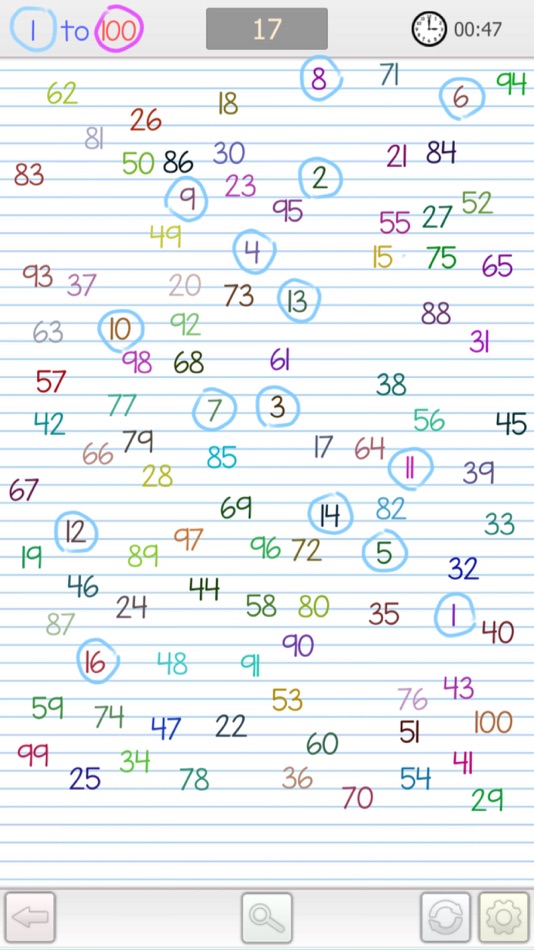 1 to 100 17 00:47
8 71 94
62 18 6
26
81 30 21 84
50 86
83 23 2
9 95 52
55 27
49 4 15 75 65
93 37 20 73 13
88
63 10 92 31
98 68 61
57 38
77 7 3
42 56 45
66 79 85 17 64
28 11 39
67
69 14 82
12 97 33
19 89 96 72 5
32
46 44
24 58 80 35 1
87 40
90
16 48 91
53 76 43
59 74
47 22 51 100
60
99 34 41
25 78 36 54
70 29